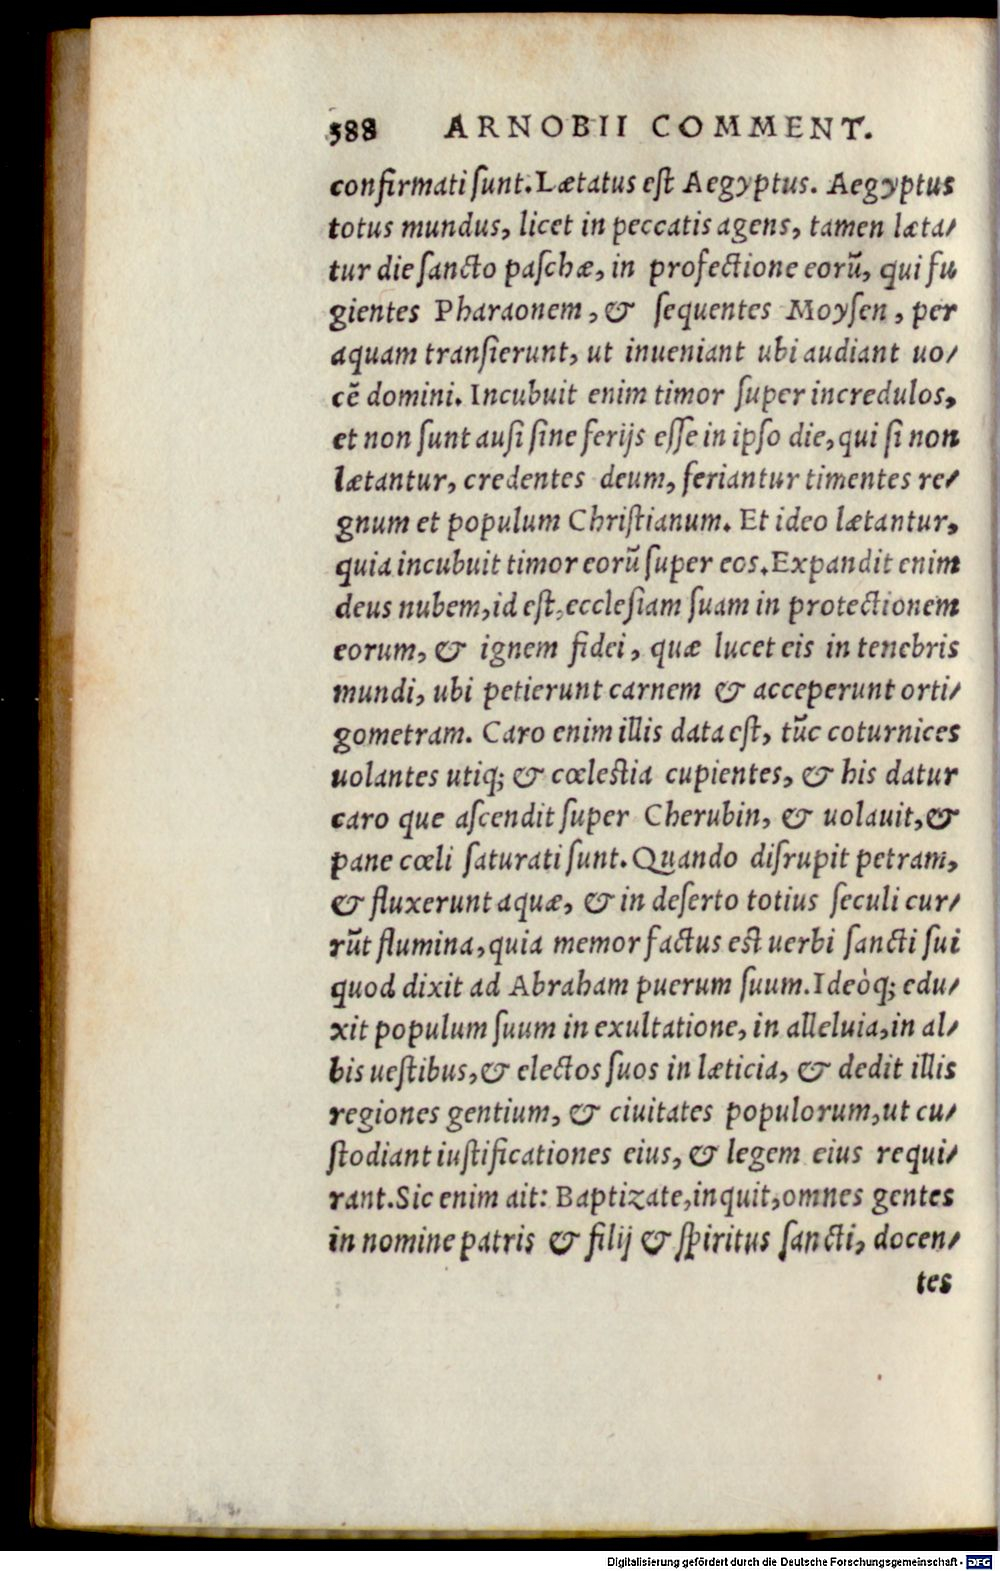 388 ARNOBII COMMENT.
confirmati sunt. Lætatus est Aegyptus. Aegyptus
totus mundus, licet in peccatis agens, tamen læta/
tur die sancto paschæ, in profectione eorũ, qui fu
gientes Pharaonem, & sequentes Moysen, per
aquam transierunt, ut inueniant ubi audiant uo/
cẽ domini. Incubuit enim timor super incredulos,
et non sunt ausi sine ferijs esse in ipso die, qui si non
lætantur, credentes deum, feriantur timentes re/
gnum et populum Christianum. Et ideo lætantur,
quia incubuit timor eorũ super eos. Expandit enim
deus nubem, id est, ecclesiam suam in protectionem
eorum, & ignem fidei, quæ lucet eis in tenebris
mundi, ubi petierunt carnem & acceperunt orti/
gometram. Caro enim illis data est, tũc coturnices
uolantes utiq; & cœlestia cupientes, & his datur
caro que ascendit super Cherubin, & uolauit, &
pane cœli saturati sunt. Quando disrupit petram,
& fluxerunt aquæ, & in deserto totius seculi cur/
rũt flumina, quia memor factus est uerbi sancti sui
quod dixit ad Abraham puerum suum. Ideòq; edu/
xit populum suum in exultatione, in alleluia, in al/
bis uestibus, & electos suos in læticia, & dedit illis
regiones gentium, & ciuitates populorum, ut cu/
stodiant iustificationes eius, & legem eius requi/
rant. Sic enim ait: Baptizate, inquit, omnes gentes
in nomine patris & filij & spiritus sancti, docen/
tes
Digitalisierung gefördert durch die Deutsche Forschungsgemeinschaft - DFG